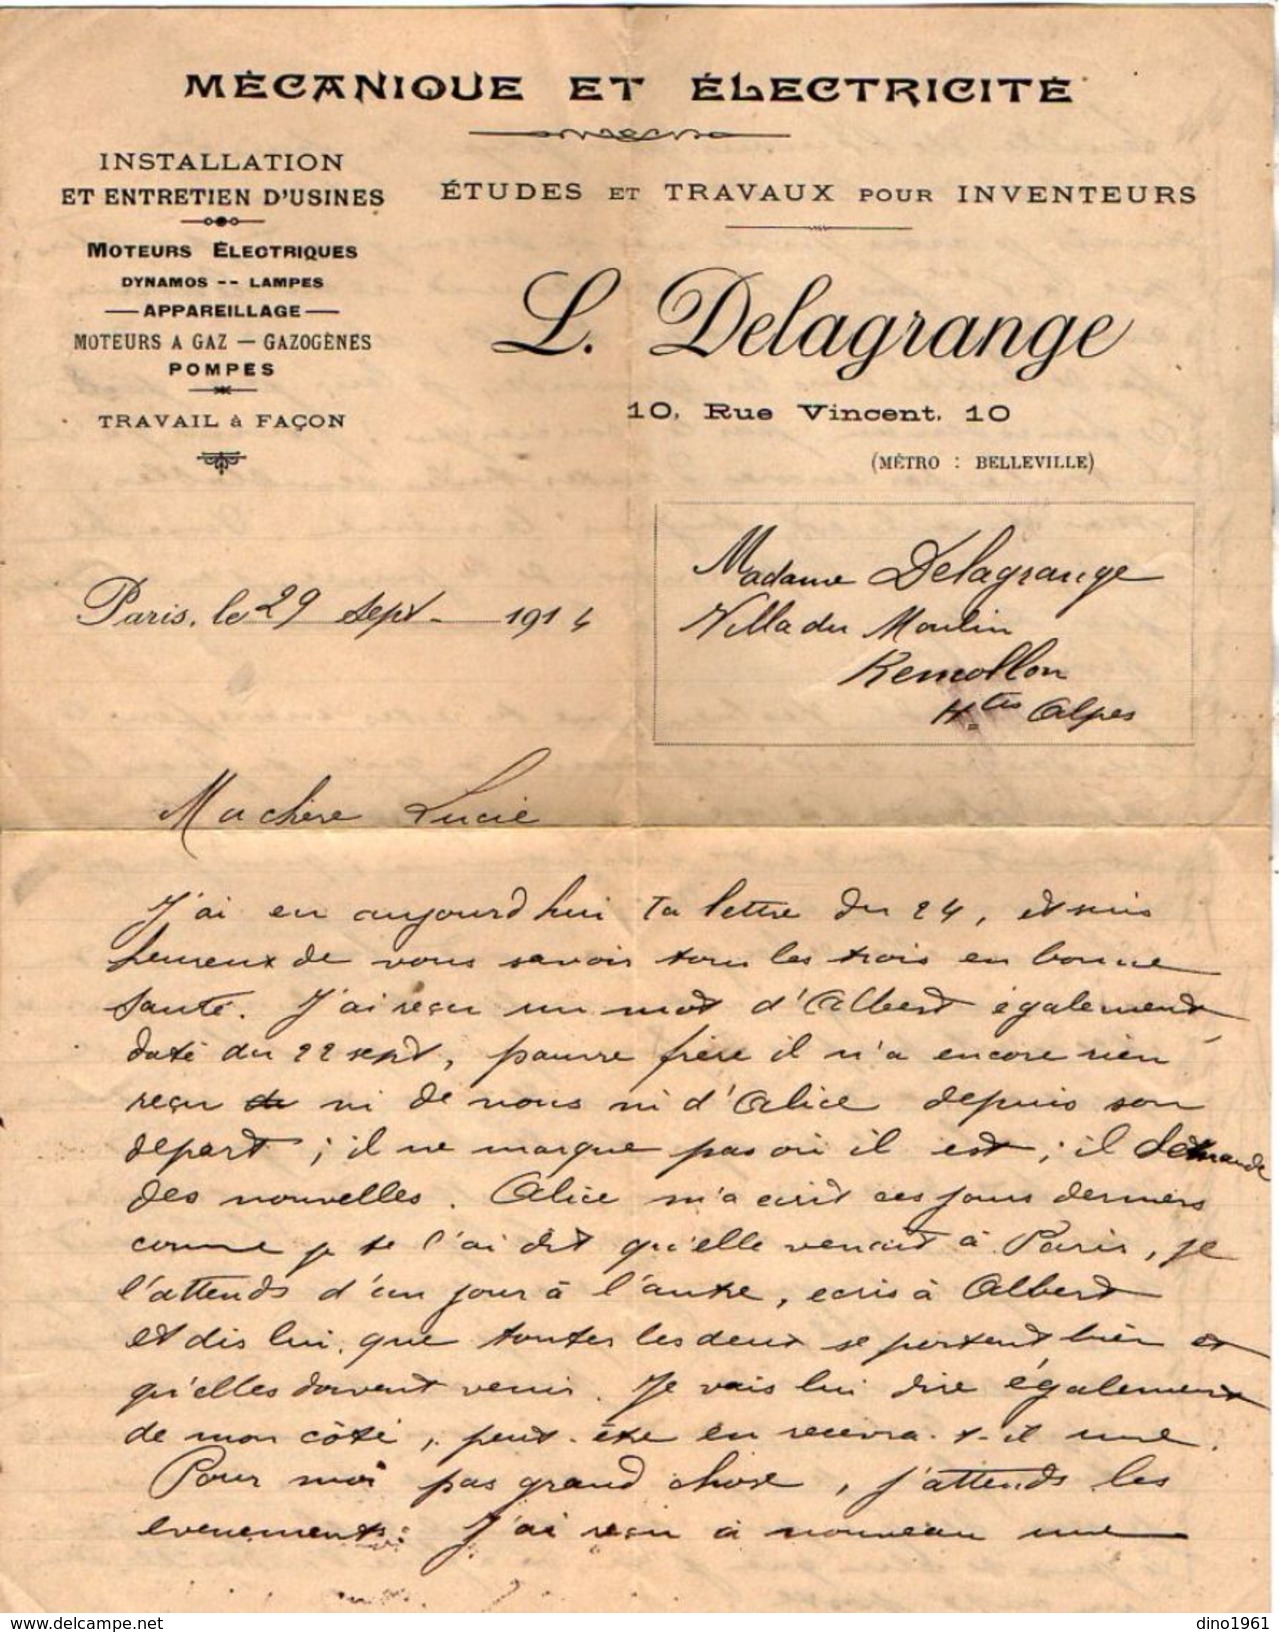 MÉCANIQUE ET ÉLECTRICITÉ
INSTALLATION
ET ENTRETIEN D'USINES
MOTEURS ÉLECTRIQUES
DYNAMOS -- LAMPES
APPAREILLAGE
MOTEURS A GAZ — GAZOGÈNES
POMPES
TRAVAIL à FAÇON
ÉTUDES ET TRAVAUX POUR INVENTEURS
L. Delagrange
10, Rue Vincent, 10
(MÉTRO : BELLEVILLE)
Madame Delagrange
Villa du Moulin
Remollon
Htes Alpes
Paris, le 29 Sept 1914
Ma chère Lucie
J'ai eu aujourd'hui ta lettre du 24, et suis
heureux de vous savoir tous les trois en bonne
santé. J'ai reçu un mot d'Albert également
daté du 22 sept, pauvre frère il n'a encore rien
reçu ni de nous ni d'Alice depuis son
départ ; il ne marque pas où il est ; il demande
des nouvelles. Alice m'a écrit ces jours derniers
comme je te l'ai dit qu'elle venait à Paris, je
l'attends d'un jour à l'autre, écris à Albert
et dis lui que toutes les deux se portent bien et
qu'elles doivent venir. Je vais lui dire également
de mon côté, peut-être en recevra-t-il une.
Pour moi pas grand chose, j'attends les
évenements. J'ai reçu à nouveau une
delcampe.net
dino1961